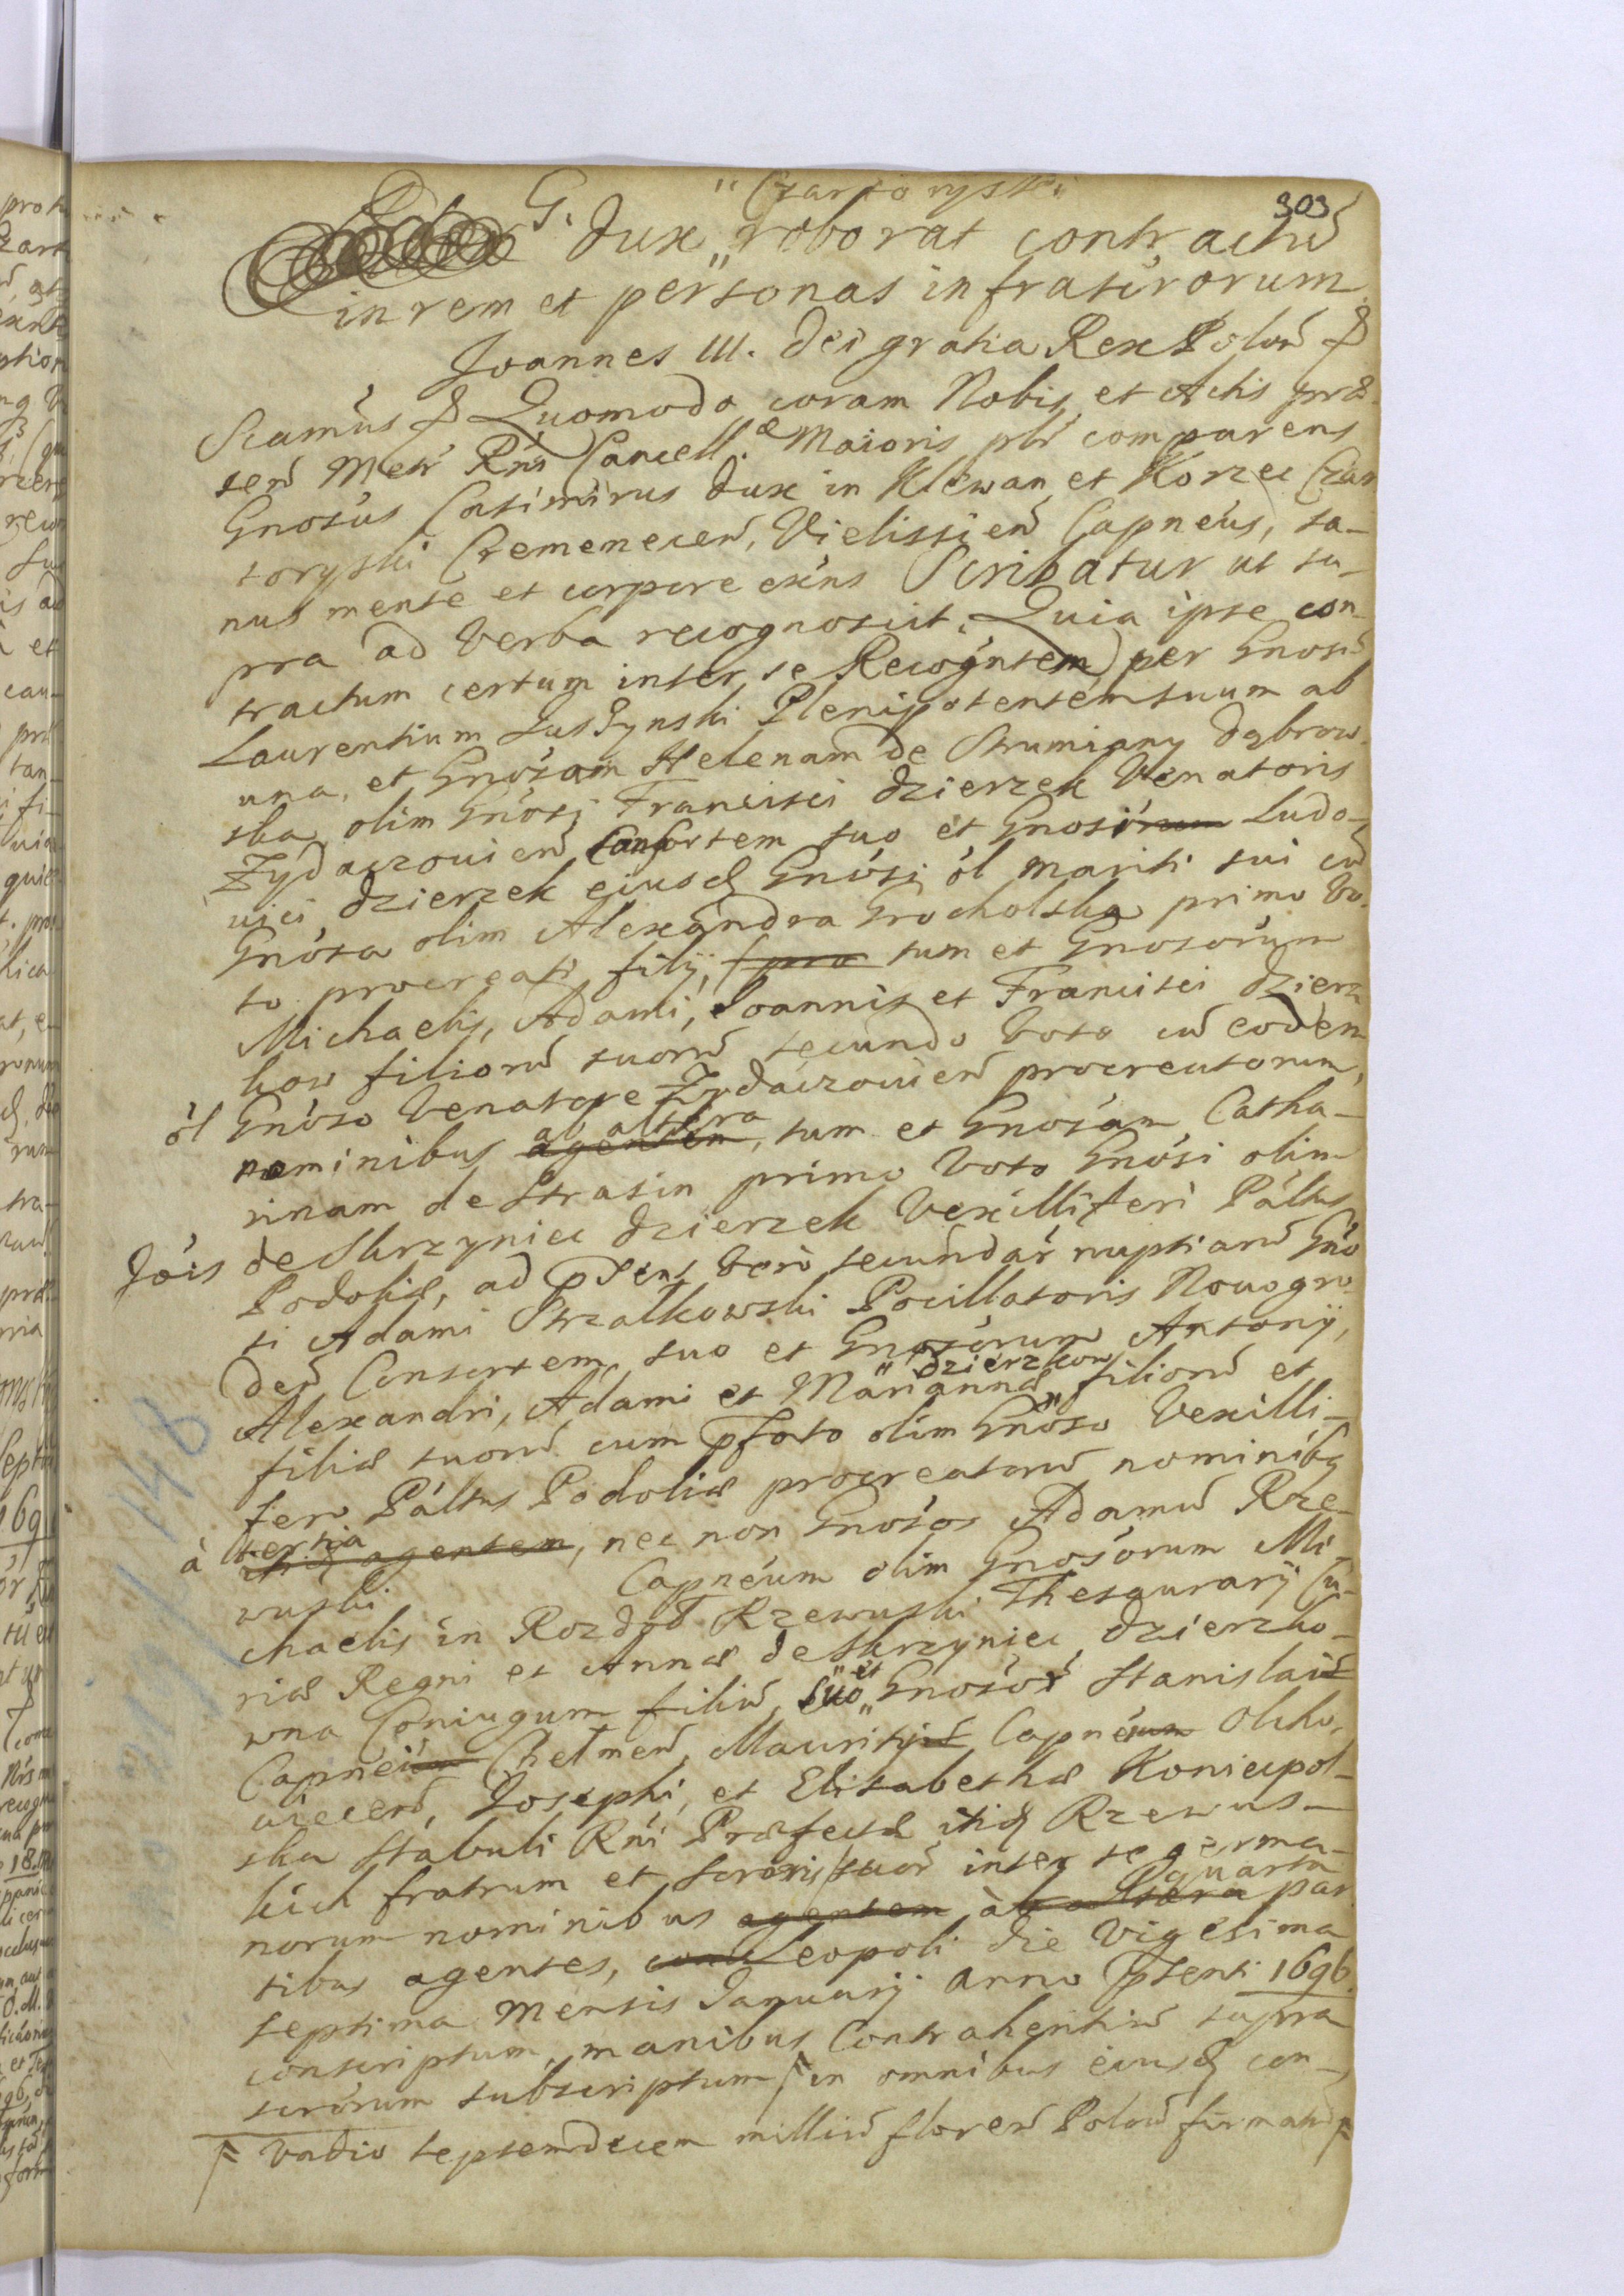 303
G. Dux "Czartoryski" roborat contractũ
in rem et personas infrascr̃orum
Joannes III. Dei gratia Rex Poloñ
Sciamus Quomodo coram Nobis et Actis præ-
señ Metr̃ Rñi Cancell. æ Maioris pĺr comparens
Gnosus Casimirus Dux in Klewan et Korzec Czar
toryski Cremeneceñ, Vielissieñ Capneus, sa-
nus mente et corpore exĩns Scribatur ut su-
pra ad verba recognovit. Quia ipse con-
tractum certum inter se Recogñtem per Gnosũ
Laurentium Plenipotentem suum ab
una, et Gnosam Helenam de Strumiany Dąbrow-
ska olim Gnosi Francisci Dzierzek Venatoris
Zydaczovieñ Consortem suo et Gnosi Ludo-
vici Dzierzek eiusd Gnosi ol mariti sui cũ
Gnosa olim Alexandra Grocholska primo vo-
to procreati filij, tum et Gnosorum
Michaelis, Adami, Joannis et Francisci Dzierz
kow filiorũ suorũ secundo voto cũ eodem
ol Gnoso Venatore Zydaczovieñ procreatorum,
nominibus agentem ab altera, tum et Gnosam Catha-
rinam de Strasin primo voto Gnosi olim
Jois de Skrzyniec Dzierzek Vexilliferi Paltus
Podoliæ, ad psens vero secundar̃ nuptiarũ Gno
si Adami Strzalkowski Pocillatoris Novogro
deñ Consortem suo et Gnosorum Antonij,
Alexandri, Adami et Mariannæ "Dzierzkow" filiorũ et
filiæ suorũ cum pfato olim Gnoso Vexilli-
fero Paltus Podoliæ procreatorũ nominibq
à tertia agentem, nec non Gnosos Adamũ Rze-
wuski Capneum olim Gnosorum Mi-
chaelis in Rozdoł Rzewuski Thesaurarij Cu-
riæ Regni et Annæ de Skrzyniec Dzierzko-
wna Coniugum filiũ, suo "et" Gnosor̃ Stanislai
Capnei Chełmeñ, Mauritij Capnei Olcho-
wieceñ, Josephi, et Elisabethæ Koniecpol-
ska Stabuli Rñi Præfectæ itid Rzewus-
kich fratrum et sororis suor̃ inter se germa-
norum nominibus agentem à quarta par
tibus agentes, Leopoli die Vigesima
septima Mensis Januarij Anno psenti 1696
conscriptum, manibus Contrahentiũ supra
scr̃orum subscriptum in omnibus eiusd con-
Vadio septemdecem milliũ floreñ Poloñ firmatũ